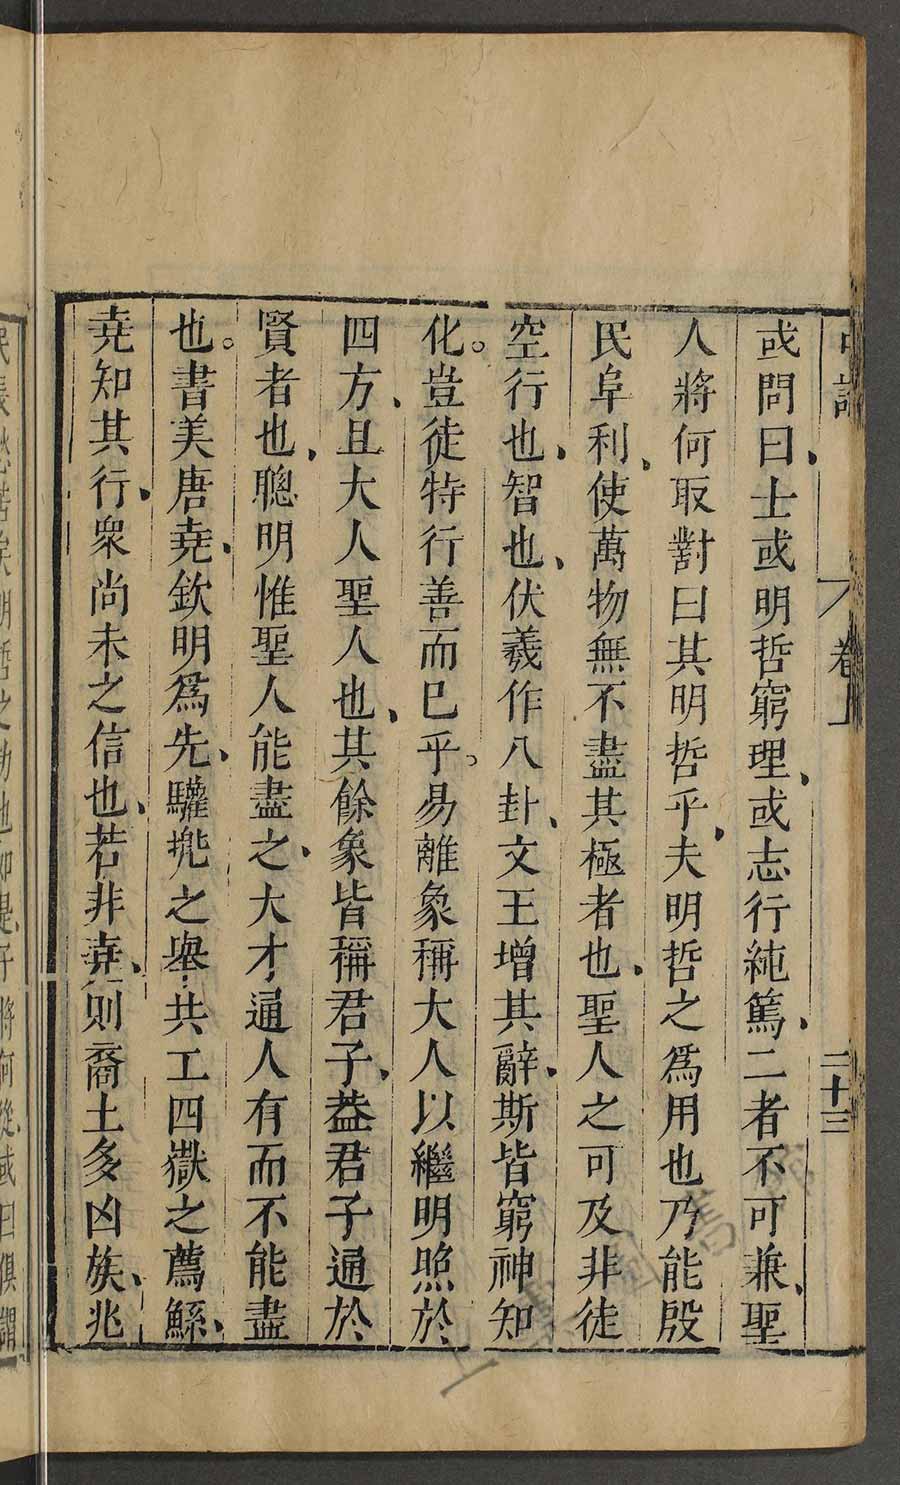 或問曰、士或明哲窮理、或志行純篤、二者不可兼、聖
人將何取對曰其明哲乎、夫明哲之爲用也乃能殷
民阜利、使萬物無不盡其極者也、聖人之可及非徒
空行也、智也、伏羲作八卦、文王增其辭、斯皆窮神知
化。豈徒特行善而已乎。易離象稱大人以繼明照於
四方、且大人聖人也、其餘象皆稱君子、葢君子通於
賢者也、聰明惟聖人能盡之、大才通人有而不能盡
也。書美唐堯、欽明爲先、驩兠之舉、共工四嶽之薦鯀、
堯知其行、衆尚未之信也、若非堯、則裔土多凶族、兆
卷上
二十三